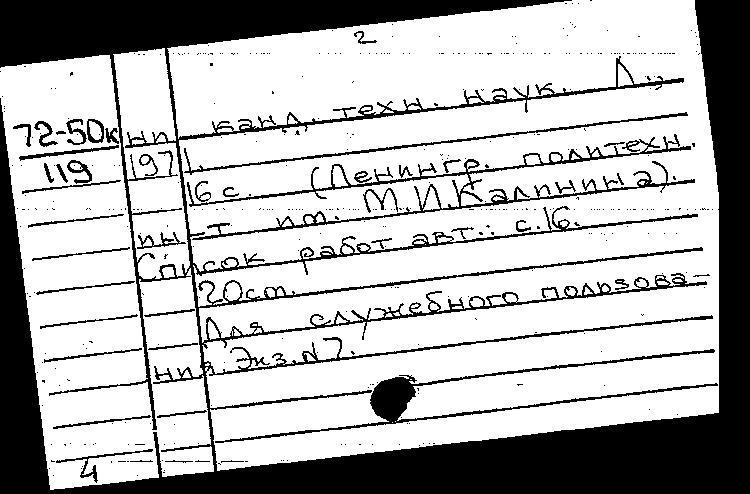 2
72-50к ни. канд. техн. наук. Л.,
119 1971.
16 с. (Ленингр. политехн.
ин-т им. М.И.Калинина).
Список работ авт.: с.16.
20cm.
Для служебного пользова-
ния. Экз.N7.
4